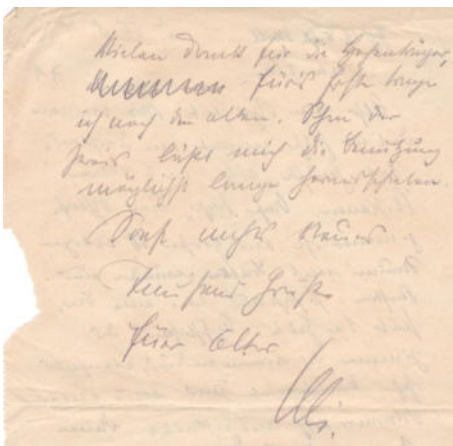 Vielen Dank für die Hosenträger,
fürs Erste trage
ich noch die alten. Schon der
Preis läßt mich die Benutzung
möglichst lange herausschieben.
Sonst nichts Neues
Tausend Grüße
Euer Alter
Uli.